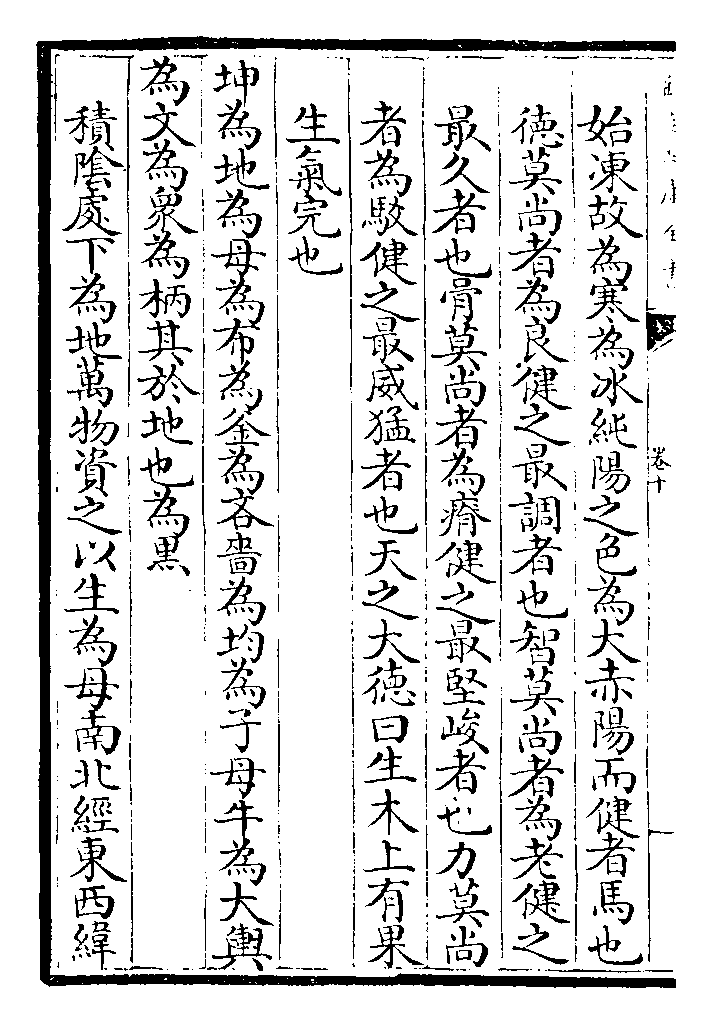 卷十
始凍故為寒為冰純陽之色為大赤陽而健者馬也
德莫尚者為良健之最調者也智莫尚者為老健之
最久者也骨莫尚者為瘠健之最堅峻者也力莫尚
者為駁健之最威猛者也天之大德曰生木上有果
生氣完也
坤為地為母為布為釜為吝嗇為均為子母牛為大輿
為文為衆為柄其於地也為黒
積陰處下為地萬物資之以生為母南北經東西緯